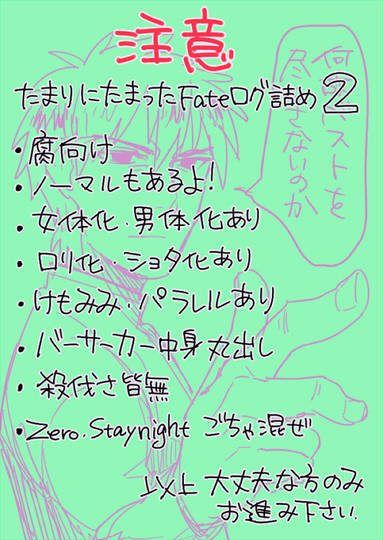 注意
たまりにたまったFateログ詰め2
・腐向け
・ノーマルもあるよ!
・女体化・男体化あり
・ロリ化・ショタ化あり
・けもみみ・パラレルあり
・バーサーカー中身丸出し
・殺伐さ皆無
・Zero.Staynight ごちゃ混ぜ
以上 大丈夫な方のみ
お進み下さい.
ストを
さないのか